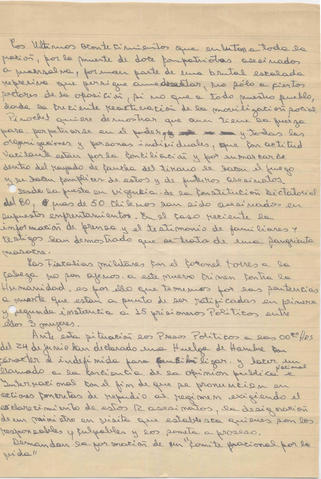 Los Ultimos acontecimientos que enlutan a toda la
nación, por la muerte de doce compatriotas asesinados
a mansalva, forman parte de una brutal escalada
represiva que persigue amedrentar, no sólo a ciertos
sectores de la oposición, si no que a todo nuestro pueblo,
desde la creciente reactivación de la movilización social
Pinochet quiere demostrar que aun tiene la fuerza
para perpetuarse en el poder, y todas las
organizaciones y personas individuales, que con actitud
vacilante estan por la conciliación y por enmarcarse
dentro del legado de del tirano le hacen el juego
y se hacen complices de estos y de futuros asesinatos.
Desde la puesta en vigencia de la constitución dictatorial
del 80, mas de 50 Chilenos han sido asesinados en
supuestos enfrentamientos. En el caso reciente la
información de prensa y el testimonio de familiares y
testigos han demostrado que se trata de una sangrienta
masacre.
Las Fiscalias militares con el coronel Torres a la
cabeza no son ajenos a este nuevo crimen contra la
Humanidad, es por ello que tememos por las sentencias
a muerte que estan a punto de ser ratificadas en primera
y segunda instancia a 15 prisioneros Politicos entre
ellos 3 mujeres.
Ante esta situación los Presos Politicos a las 00:00 hrs
del 24 de Junio han declarado una Huelga de Hambre con
caracter de indefinida para y hacen un
llamado a la conciencia de la opinión publica Nacional
e Internacional con el fin de que se pronuncien en
acciones concretas de repudio al regimen exigiendo el
esclarecimiento de estos 12 asesinatos, la designación
de un ministro en visita que establezca quienes son los
responsables y culpables y los someta a proceso.
Demandan la formación de un "Comite Nacional por la
vida"